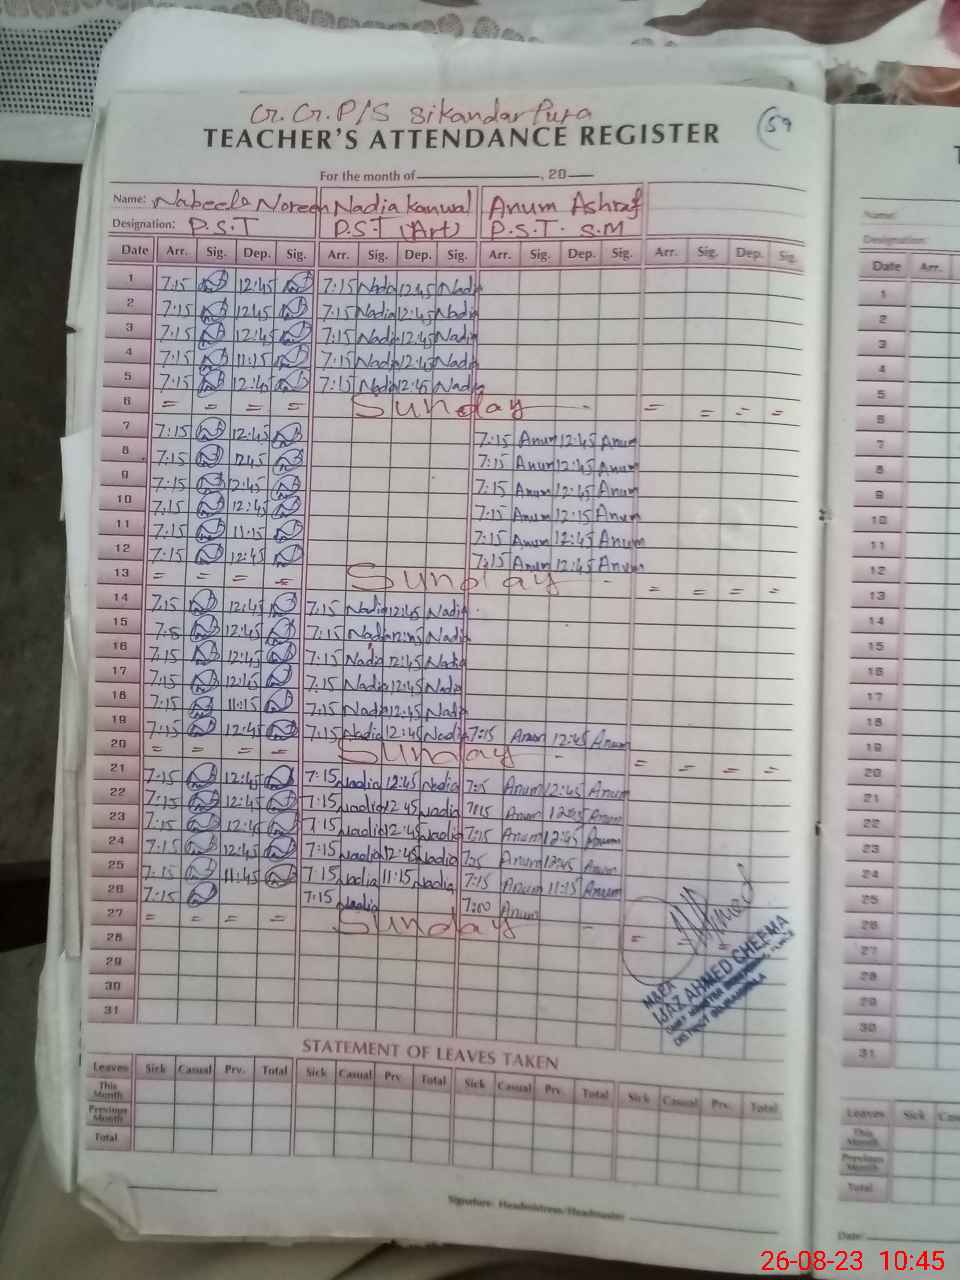 G.G.P/S Sikandar Pura
59
TEACHER'S ATTENDANCE REGISTER
For the month of , 20
Name: Nabeela Noreen Nadia Kanwal Anum Ashraf
Designation: P.S.T P.S.T (Art) P.S.T. S.M
Date Arr. Sig. Dep. Sig. Arr. Sig. Dep. Sig. Arr. Sig. Dep. Sig. Arr. Sig. Dep. Sig.
1 7:15 12:45 7:15 Nadia 12:45 Nadia
2 7:15 12:45 7:15 Nadia 12:45 Nadia
3 7:15 12:45 7:15 Nadia 12:45 Nadia
4 7:15 11:15 7:15 Nadia 12:45 Nadia
5 7:15 12:45 7:15 Nadia 12:45 Nadia
6 = = = = Sunday - = = = =
7 7:15 12:45 7:15 Anum 12:45 Anum
8 7:15 1245 7:15 Anum 12:45 Anum
9 7:15 12:45 7:15 Anum 12:45 Anum
10 7:15 12:45 7:15 Anum 12:15 Anum
11 7:15 11:15 7:15 Anum 12:45 Anum
12 7:15 12:45 7:15 Anum 12:45 Anum
13 = = = = Sunday - = = = =
14 7:15 12:45 7:15 Nadia 12:45 Nadia
15 12:45 7:15 Nadia Nadia
16 7:15 12:45 7:15 Nadia 12:45 Nadia
17 7:15 12:45 7:15 Nadia 12:45 Nadia
18 7:15 11:15 7:15 Nadia 12:45 Nadia
19 7:15 12:45 7:15 Nadia 12:45 Nadia 7:15 Anum 12:45 Anum
20 = = = = Sunday - = = = =
21 7:15 12:45 7:15 Nadia 12:45 Nadia Anum 12:45 Anum
22 7:15 12:45 7:15 Nadia 12 45 Nadia 7:15 Anum 12:45 Anum
23 7:15 12:45 7:15 Nadia 12:45 Nadia 7:15 Anum 12:45 Anum
24 7:15 12:45 7:15 Nadia 12:45 Nadia Anum 12:45 Anum
25 7:15 11:45 7:15 Nadia 11:15 Nadia 7:15 Anum 11:15 Anum
26 7:15 7:15 Nadia 7:00 Anum
27 = = = = Sunday - =
28
29
30
31
M&EA
IJAZ AHMED CHEEMA
STATEMENT OF LEAVES TAKEN
Leaves Sick Casual Prv. Total Sick Casual Prv. Total Sick Casual Prv. Total Sick Casual Prv. Total
This Month
Previous Month
Total
Signature: Headmistress/Headmaster
Name:
Designation:
Date Arr.
1
2
3
4
5
6
7
8
9
10
11
12
13
14
15
16
17
18
19
20
21
22
23
24
25
26
27
28
29
30
31
Leaves Sick
This Month
Previous Month
Total
Date:
26-08-23 10:45